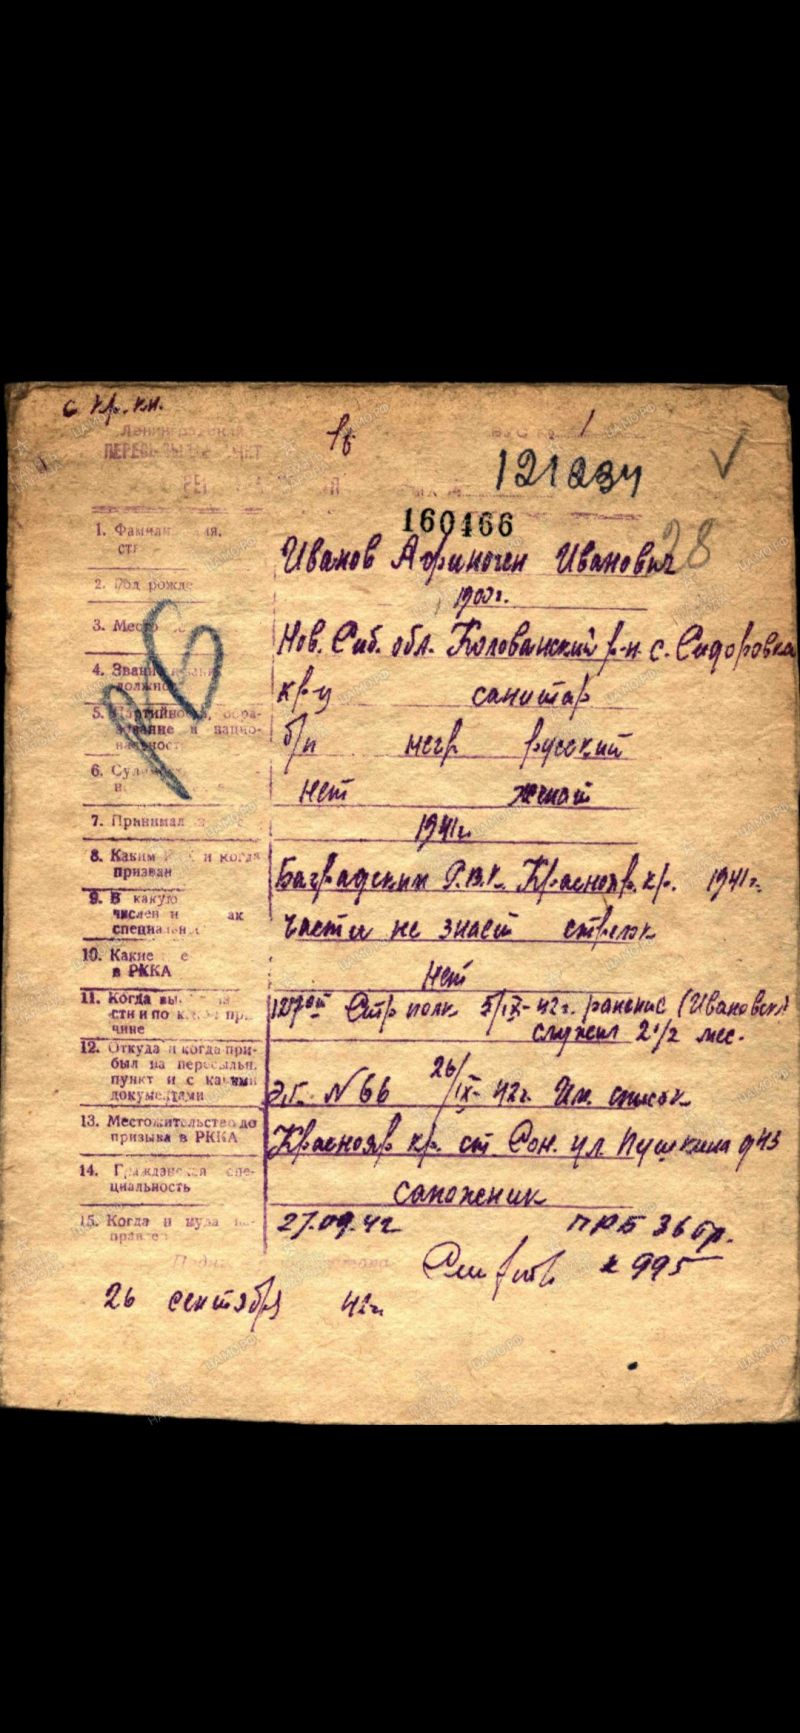 с кр. кн.
Ленинградский
1б
1
121234
160466
1. Фамилия,
Иванов Афиноген Иванович
28
2. Год рожде
1900г.
3. Место
Нов. Сиб. обл. Колованский р-н. с. Сидоровка
4. Звание
должнос
кр-ц санитар
5. Партийнос, обра-
зование и нацио-
нальност
б/п негр русский
6. Су
нет женат
7. Принимал
1941г.
8. Каким и когда
призван
Баградским Р.В.К. Краснояр. кр. 1941г.
9. В какую
числен и ак
специальн
части не знает стрелок
10. Какие е
в РККА
нет
11. Когда вы
сти и по к пр
чине
Стр полк 5/IX-42г. ранение (Ивановск
служил 2 1/2 мес.
12. Откуда и когда при-
был на пересыльн.
пункт и с какими
документами
Э.Г. N 66 26/IX-42г. Им. список
13. Местожительство до
призыва в РККА
Краснояр кр. ст. Сон. ул Пушкина д 43
14. Гражданская спе-
циальность
сапожник
15. Когда и куда на-
правлен
27.09.42 ПРБ 36 бр.
995
26 сентября 42г